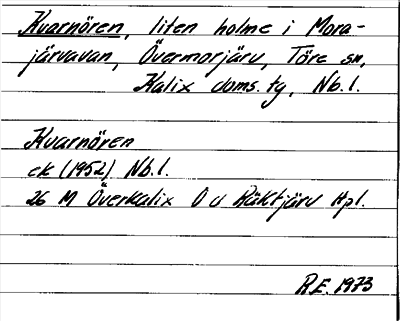 Kvarnören, liten holme i Mora-
järvavan, Övermorjärv, Töre sn,
Kalix doms. tg, Nb. l.
Kvarnören
ek (1952) Nb. l.
26 M Överkalix O d Räktjärv Hpl.
R.E. 1973